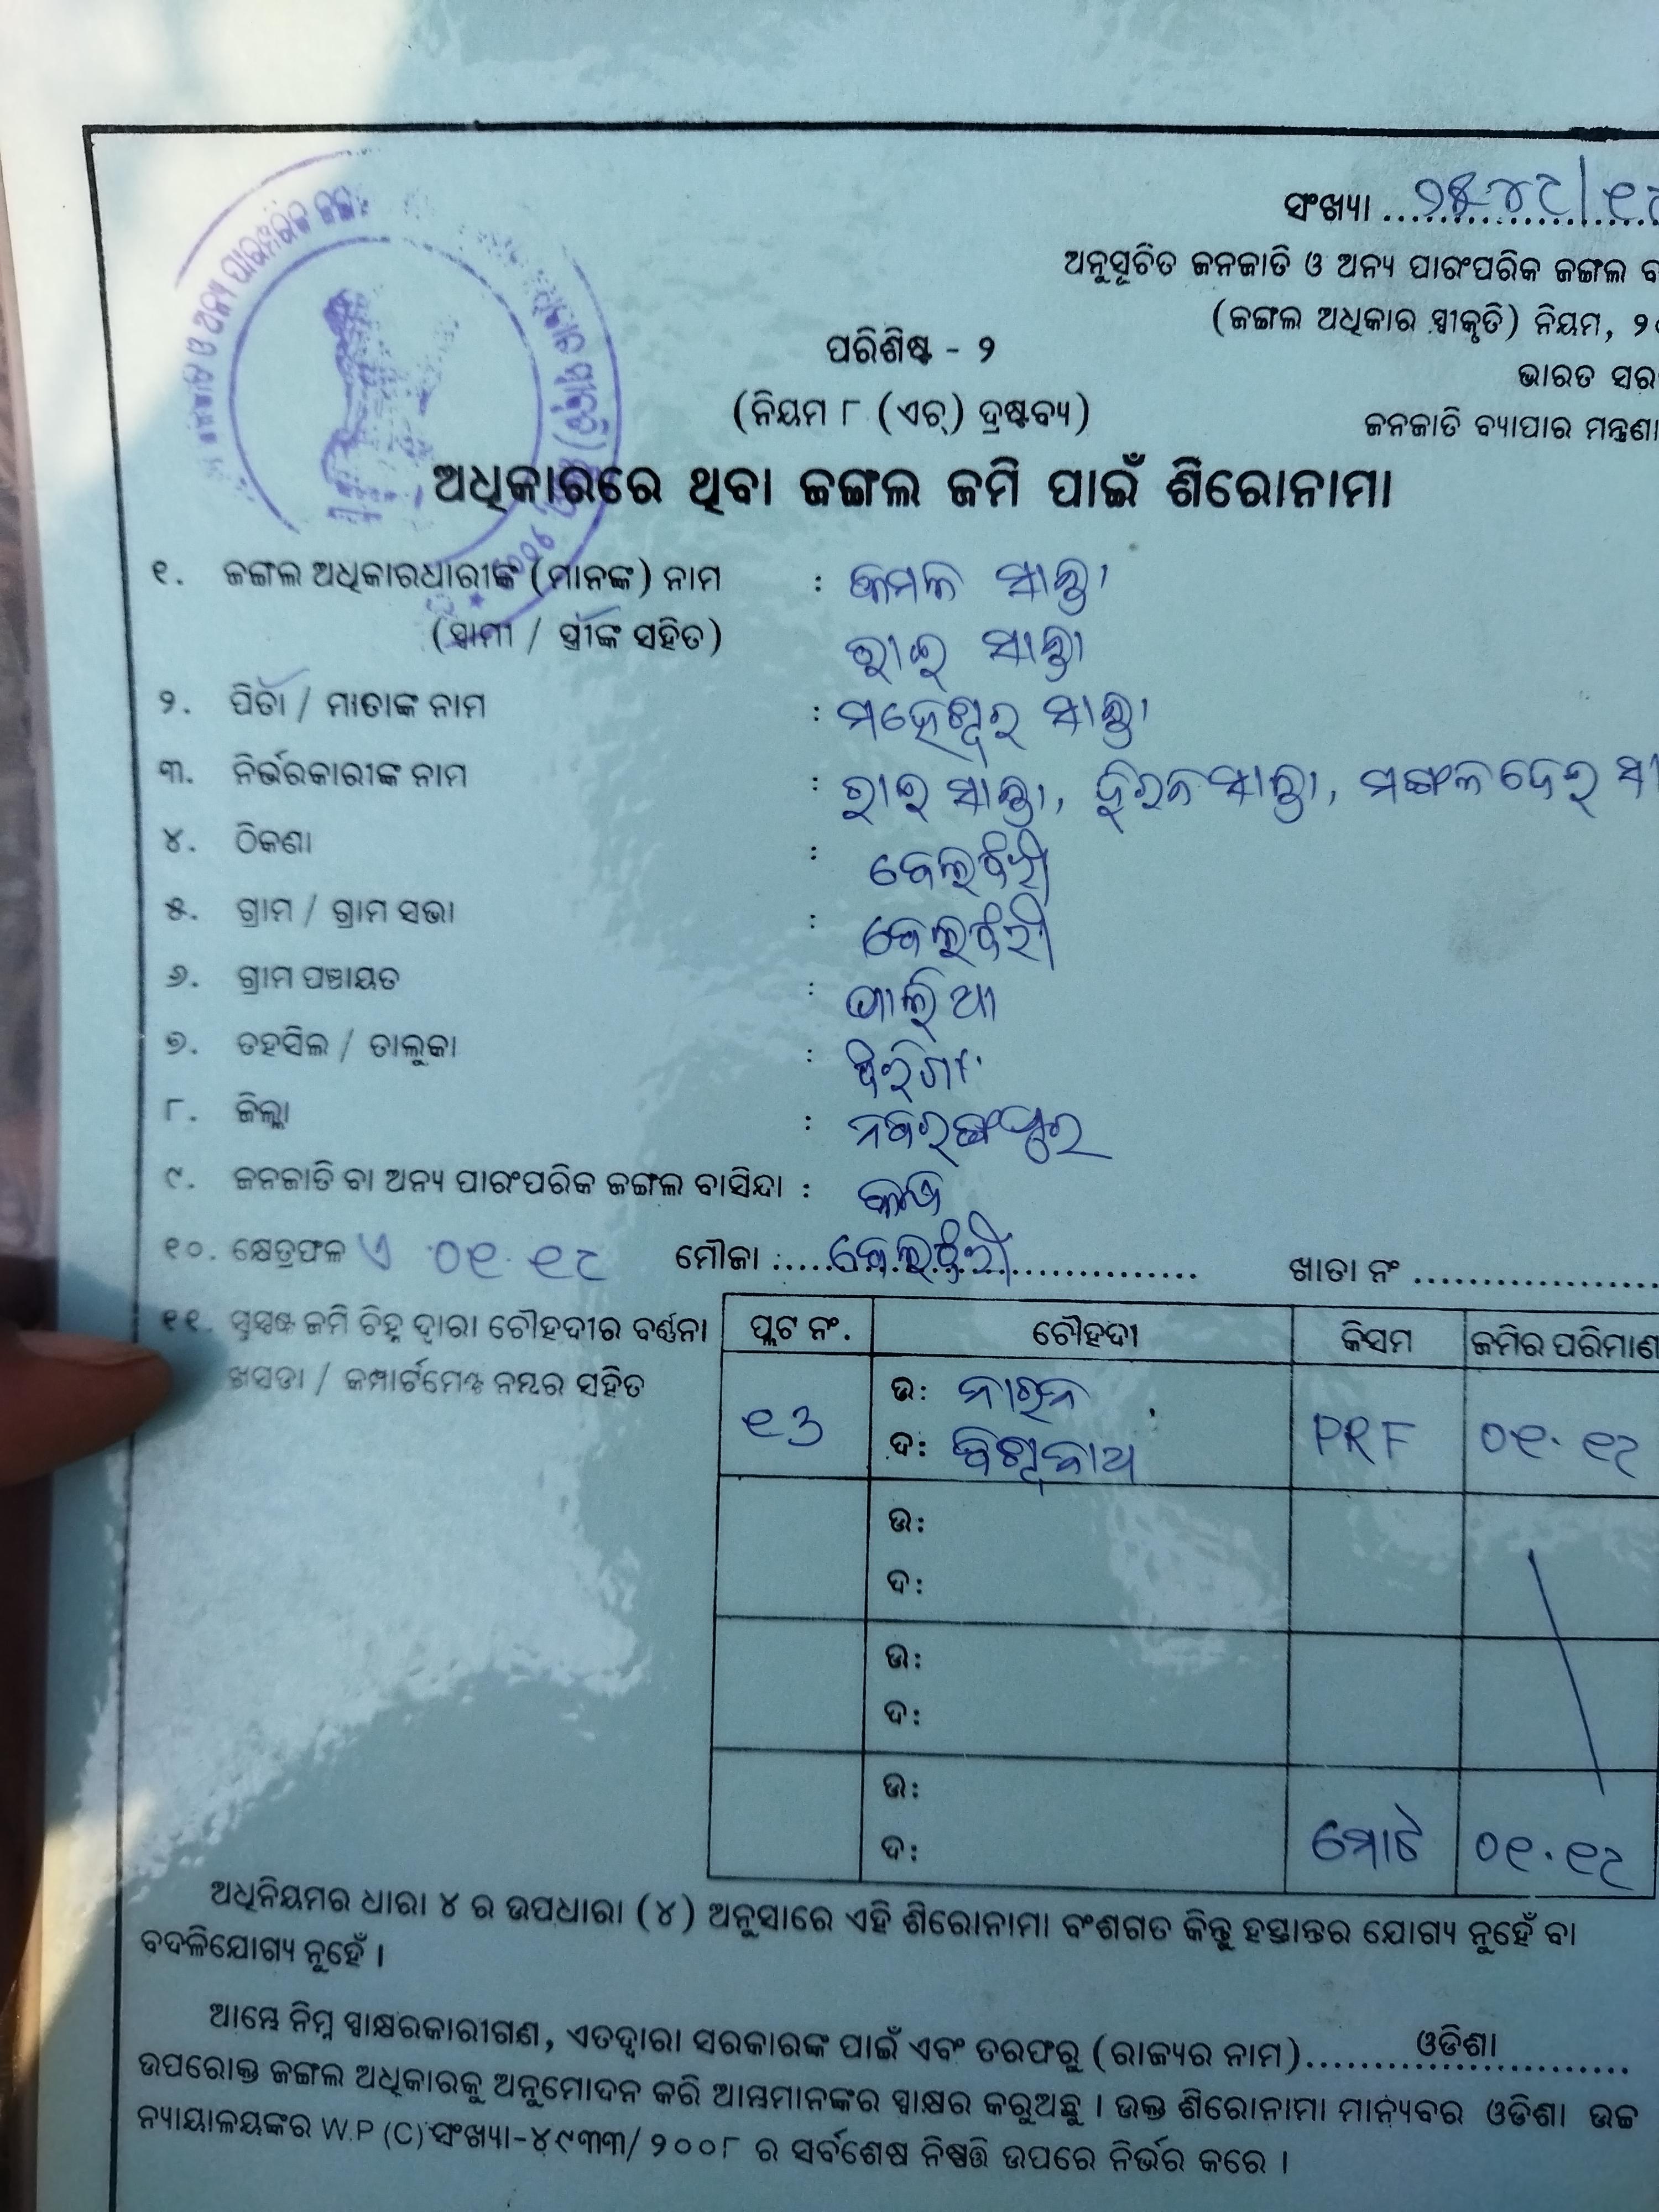 ସଂଖ୍ୟା
ଅନୁସୂଚିତ ଜନଜାତି ଓ ଅନ୍ୟ ପାରଂପରିକ ଜଙ୍ଗଲ
(ଜଙ୍ଗଲ ଅଧିକାର ସ୍ୱୀକୃତି) ନିୟମ,
ପରିଶିଷ୍ଟ - ୨
ଭାରତ
(ନିୟମ ୮ (ଏଚ୍) ଦ୍ରଷ୍ଟବ୍ୟ)
ଜନଜାତି ବ୍ୟାପାର
ଅଧିକାରରେ ଥିବା ଜଙ୍ଗଲ ଜମି ପାଇଁ ଶିରୋନାମା
୧. ଜଙ୍ଗଲ ଅଧିକାରଧାରୀଙ୍କ (ମାନଙ୍କ) ନାମ : କମଳ ସାନ୍ତା
(ସ୍ୱାମୀ / ସ୍ତ୍ରୀଙ୍କ ସହିତ) ରାଇ ସାନ୍ତା
୨. ପିତା / ମାତାଙ୍କ ନାମ : ମହେଶ୍ୱର ସାନ୍ତା
୩. ନିର୍ଭରକାରୀଙ୍କ ନାମ : ରାଇ ସାନ୍ତା, ସାନ୍ତା,
୪. ଠିକଣା :
୫. ଗ୍ରାମ / ଗ୍ରାମ ସଭା :
୬. ଗ୍ରାମ ପଞ୍ଚାୟତ :
୭. ତହସିଲ / ତାଲୁକା :
୮. ଜିଲ୍ଲା : ନବରଙ୍ଗପୁର
୯. ଜନଜାତି ବା ଅନ୍ୟ ପାରଂପରିକ ଜଙ୍ଗଲ ବାସିନ୍ଦା :
୧୦. କ୍ଷେତ୍ରଫଳ ଏ ୦୧.୧୮ ମୌଜା : ଖାତା ନଂ
୧୧. ସୁସ୍ପଷ୍ଟ ଜମି ଚିହ୍ନ ଦ୍ୱାରା ଚୌହଦୀର ବର୍ଣ୍ଣନା
ଖସଡା / କମ୍ପାର୍ଟମେଣ୍ଟ ନମ୍ବର ସହିତ
ପ୍ଲଟ ନଂ. ଚୌହଦୀ କିସମ ଜମିର ପରିମାଣ
୧୩ ଉ: PRF ୦୧.୧୮
ଦ: ବିଶ୍ୱନାଥ
ଉ:
ଦ:
ଉ:
ଦ:
ଉ:
ଦ: ମୋଟ ୦୧.୧୮
ଅଧିନିୟମର ଧାରା ୪ ର ଉପଧାରା (୪) ଅନୁସାରେ ଏହି ଶିରୋନାମା ବଂଶଗତ କିନ୍ତୁ ହସ୍ତାନ୍ତର ଯୋଗ୍ୟ ନୁହେଁ ବା
ବଦଳିଯୋଗ୍ୟ ନୁହେଁ ।
ଆମ୍ଭେ ନିମ୍ନ ସ୍ୱାକ୍ଷରକାରୀଗଣ, ଏତଦ୍ୱାରା ସରକାରଙ୍କ ପାଇଁ ଏବଂ ତରଫରୁ (ରାଜ୍ୟର ନାମ) ଓଡିଶା
ଉପରୋକ୍ତ ଜଙ୍ଗଲ ଅଧିକାରକୁ ଅନୁମୋଦନ କରି ଆମ୍ଭମାନଙ୍କର ସ୍ୱାକ୍ଷର କରୁଅଛୁ । ଉକ୍ତ ଶିରୋନାମା ମାନ୍ୟବର ଓଡିଶା ଉଚ୍ଚ
ନ୍ୟାୟାଳୟଙ୍କର W.P (C) ସଂଖ୍ୟା-୪୯୩୩/୨୦୦୮ ର ସର୍ବଶେଷ ନିଷ୍ପତ୍ତି ଉପରେ ନିର୍ଭର କରେ ।